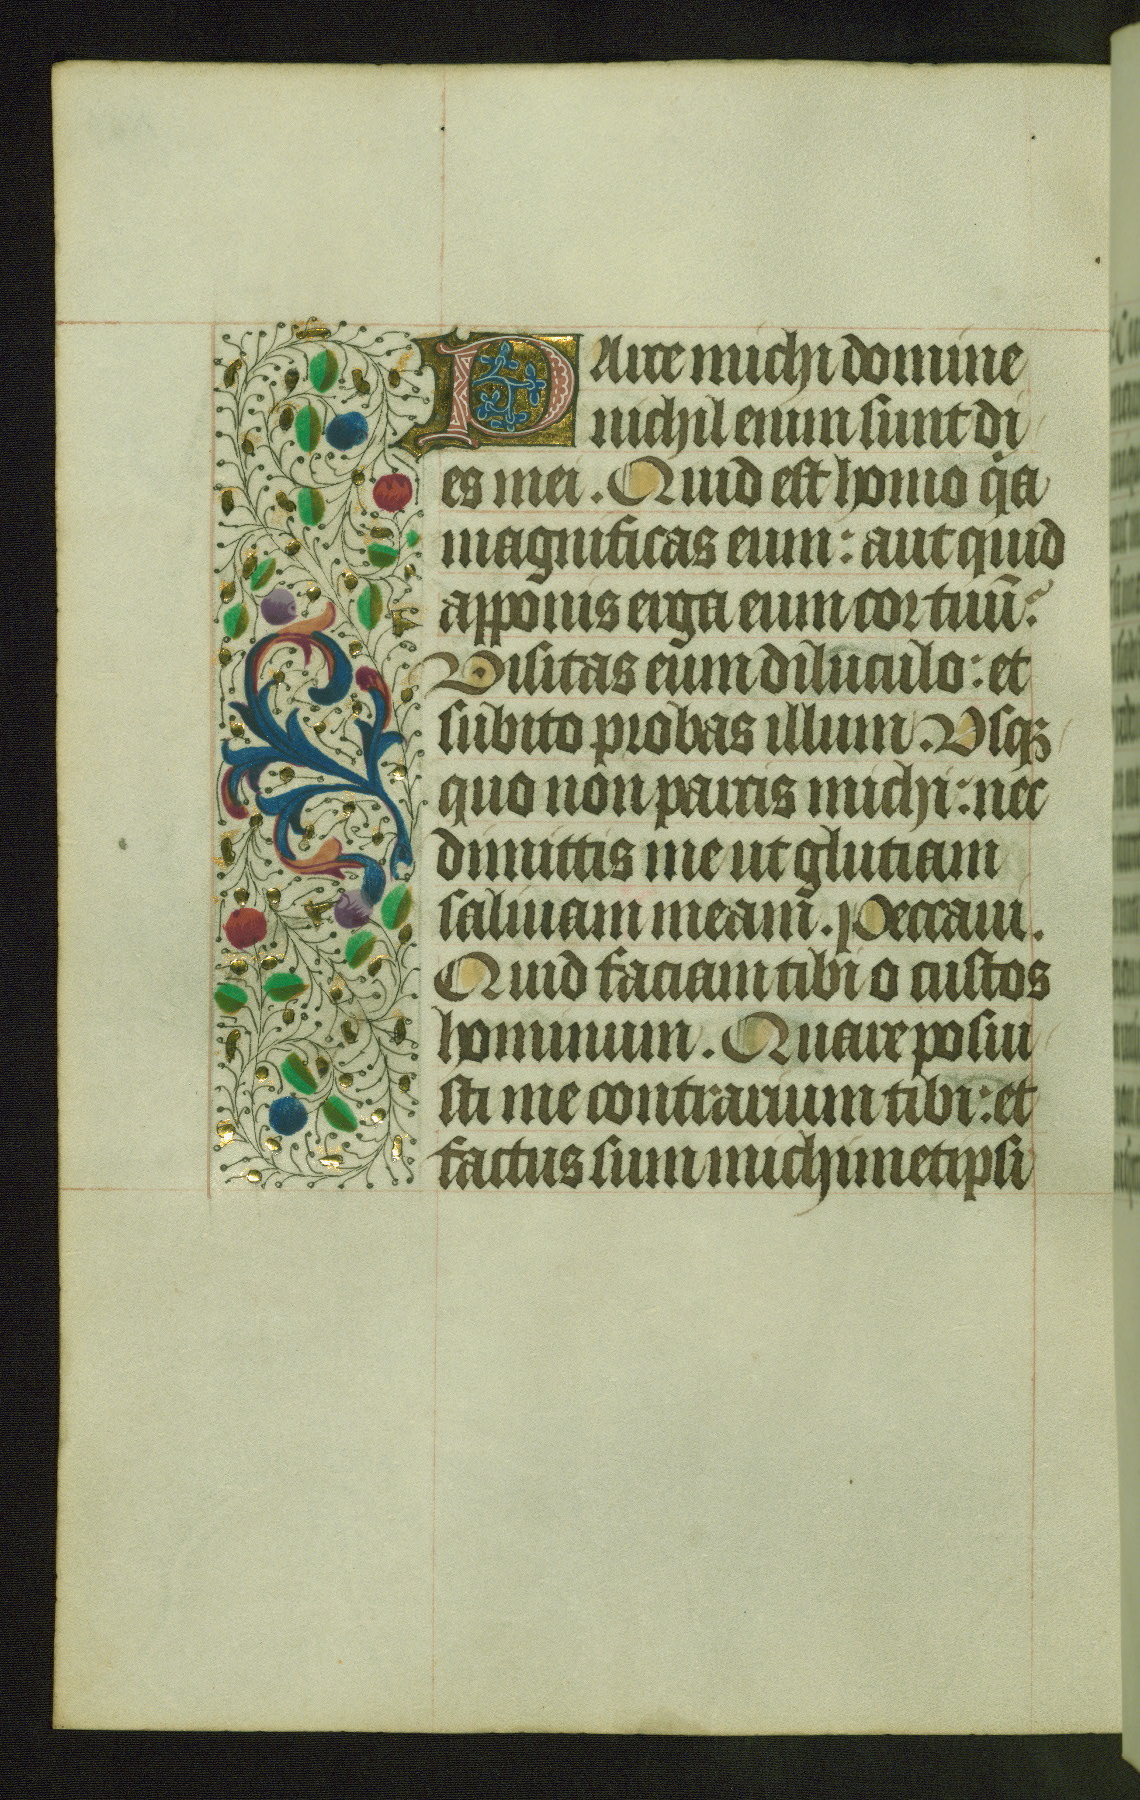 Parce michi domine
nichil enim sunt di
es mei. Quid est homo qͥa
magnificas eum: aut quid
apponis erga eum cor tuū?
Visitas eum diluculo: et
subito probas illum. Vsqꝫ
quo non parcis michi: nec
dimittis me ut glutiam
saliuam meam̄. Peccaui.
Quid faciam tibi o custos
hominum. Quare posui
sti me contrarium tibi: et
factus sum michimetipsi